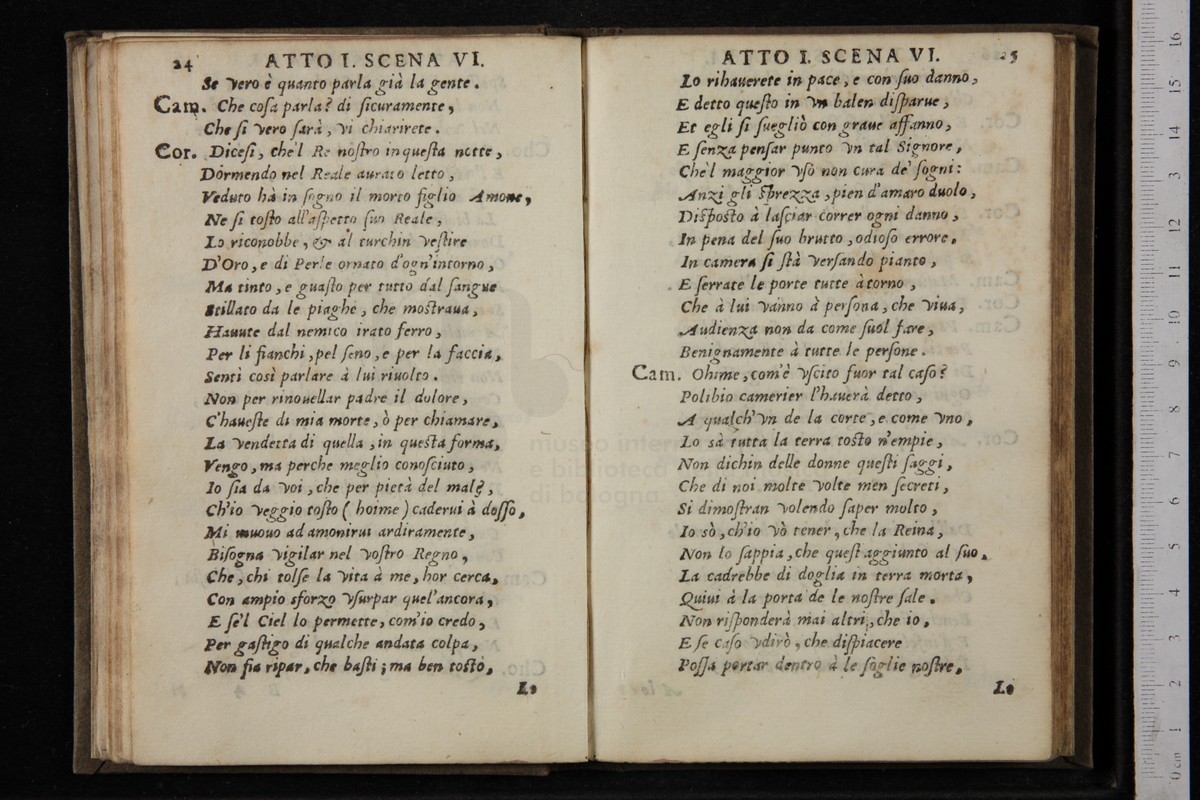 24 ATTO I. SCENA VI.
Se vero è quanto parla già la gente.
Cam. Che cosa parla? di sicuramente,
Che si vero sarà, vi chiarirete.
Cor. Dicesi, che'l Re nostro in questa notte,
Dormendo nel Reale aurato letto,
Veduto hà in sogno il morto figlio Amone,
Ne si tosto all'aspetto suo Reale,
Lo riconobbe, & al turchin vestire
D'Oro, e di Perle ornato d'ogn'intorno,
Ma tinto, e guasto per tutto dal sangue
Stillato da le piaghe, che mostraua,
Hauute dal nemico irato ferro,
Per li fianchi, pel seno, e per la faccia,
Sentì così parlare à lui riuolto.
Non per rinouellar padre il dolore,
C'haueste di mia morte, ò per chiamare,
La vendetta di quella, in questa forma,
Vengo, ma perche meglio conosciuto,
Io sia da voi, che per pietà del male,
Ch'io veggio tosto (hoime) caderui à dosso,
Mi muouo ad amonirui arditamente,
Bisogna vigilar nel vostro Regno,
Che, chi tolse la vita à me, hor cerca,
Con ampio sforzo vsurpar quel'ancora,
E se'l Ciel lo permette, com'io credo,
Per gastigo di qualche andata colpa,
Non fia ripar, che basti; ma ben tosto,
Lo
ATTO I. SCENA VI. 25
Lo rihauerete in pace, e con suo danno,
E detto questo in vn balen disparue,
Et egli si suegliò con graue affanno,
E senza pensar punto vn tal Signore,
Che'l maggior vsò non cura de' sogni:
Anzi gli sprezza, pien d'amaro duolo,
Disposto à lasciar correr ogni danno,
In pena del suo brutto, odioso errore,
In camera si stà versando pianto,
E serrate le porte tutte à torno,
Che à lui vanno à persona, che viua,
Audienza non da come suol fare,
Benignamente à tutte le persone.
Cam. Ohime, com'è vscito fuor tal caso?
Polibio camerier l'hauerà detto,
A qualch'vn de la corte, e come vno,
Lo sà tutta la terra tosto n'empie,
Non dichin delle donne questi saggi,
Che di noi molte volte men secreti,
Si dimostran volendo saper molto,
Io sò, ch'io vò tener, che la Reina,
Non lo sappia, che quest aggiunto al suo,
La cadrebbe di doglia in terra morta,
Quiui à la porta de le nostre sale.
Non risponderà mai altri, che io,
E se caso vdirò, che dispiacere
Possa portar dentro à le soglie nostre,
Lo
museo inter
e biblioteca
di bologna
0 cm 1 2 3 4 5 6 7 8 9 10 11 12 13 14 15 16